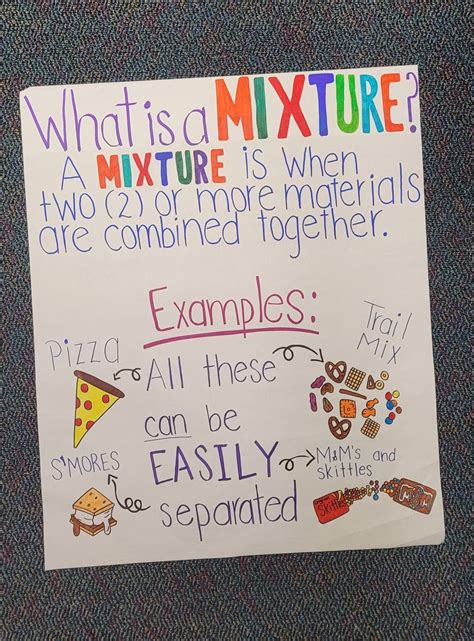 What is a MIXTURE?
A MIXTURE is when
two (2) or more materials
are combined together.
Examples:
Pizza
Trail
Mix
All these
can be
EASILY
separated
S'MORES
M&M's and
skittles
Skittles
M&M